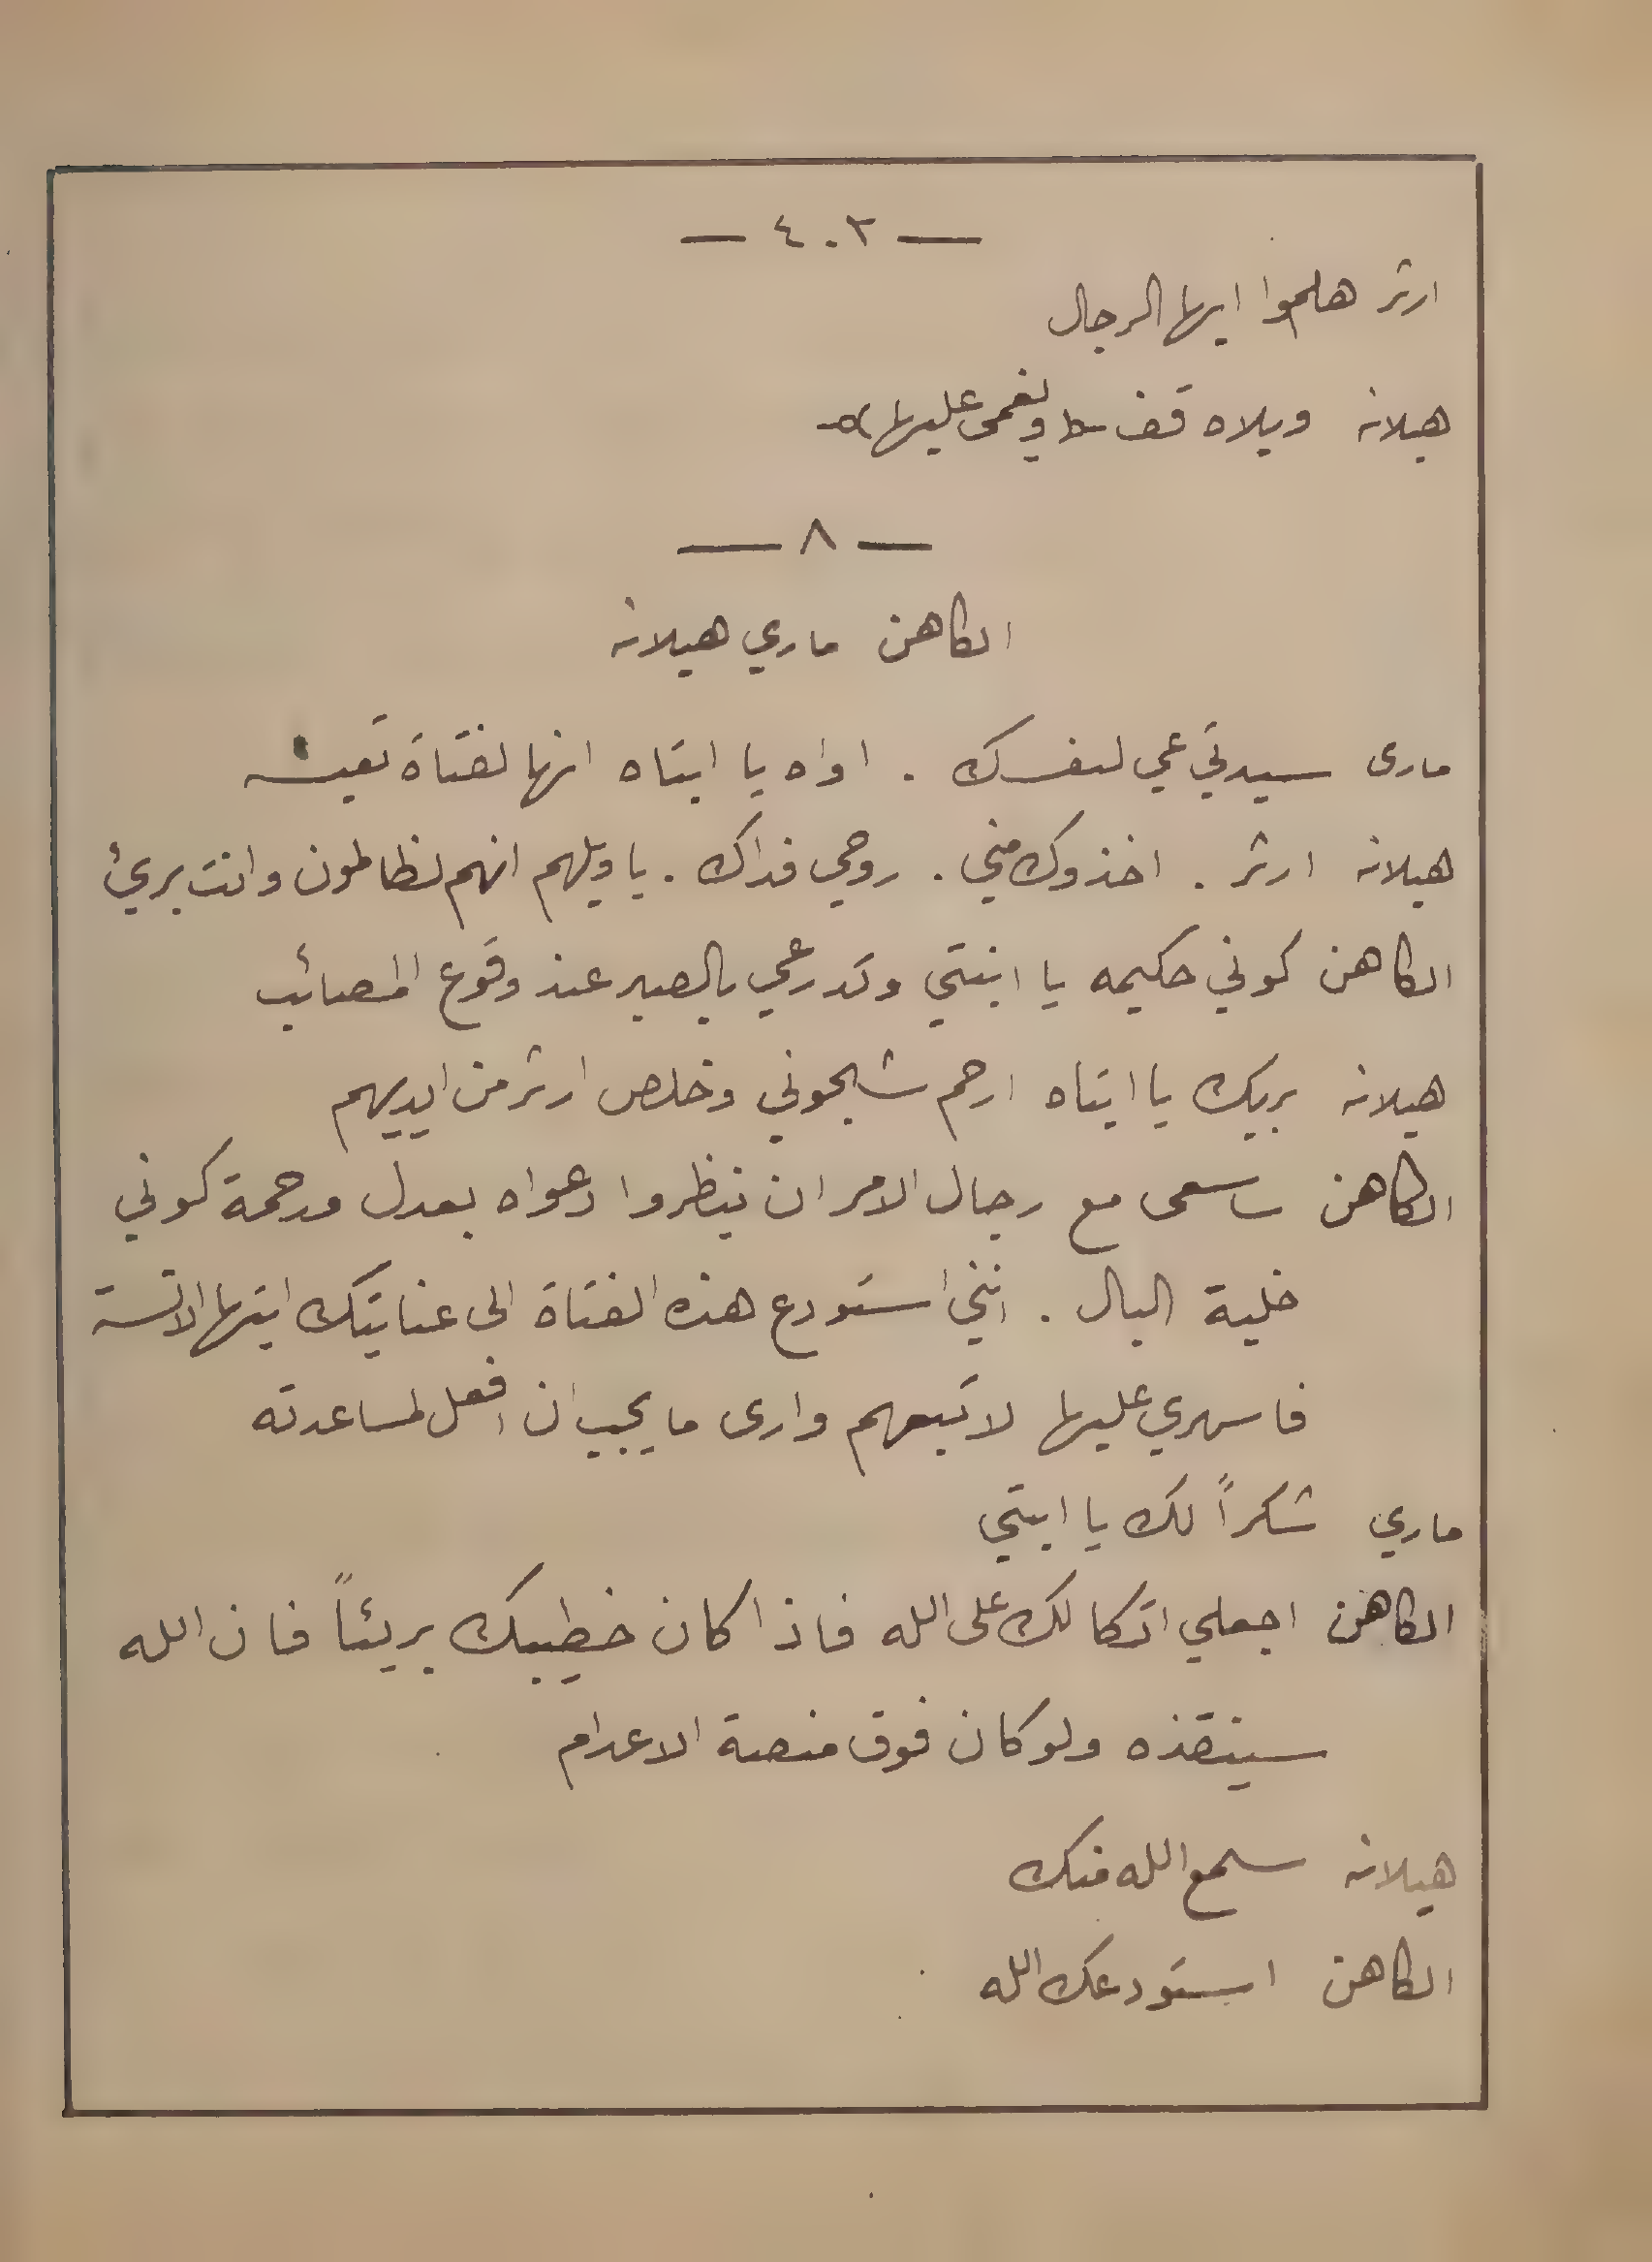 — ٤٠٢ —
ارثر هلموا ايها الرجال
هيلانه ويلاه قف (ويغمى عليها)
— ٨ —
الكاهن ماري هيلانه
مارى سيدتي عي لنفسك . اواه يا ابتاه انها لفتاة تعيسه
هيلانه ارثر . اخذوك مني . روحي فداك . يا ويلهم انهم لظالمون وانت بريئ
الكاهن كوني حكيمه يا ابنتي وتدرعي بالصبر عند وقوع المصائب
هيلانه بربك يا ابتاه ارحم شجوني وخلص ارثر من ايديهم
الكاهن ساسعى مع رجال الامر ان ينظروا دعواه بعدل ورحمة كوني
خلية البال . انني استودع هذه الفتاة الى عنايتك ايتها الانسة
فاسهري عليها لاتبعهم وارى ما يجب ان افعل لمساعدته
ماري شكراً لك يا ابتي
الكاهن اجعلي اتكالك على الله فاذا كان خطيبك بريئاً فان الله
سينقذه ولو كان فوق منصة الاعدام
هيلانه سمع الله منك
الكاهن استودعك الله